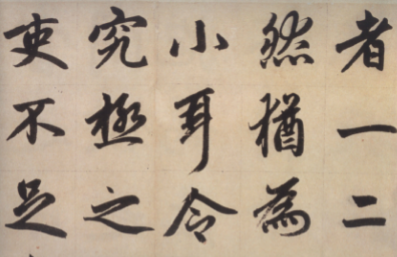 者一二
然猶為
小耳令
究極之
吏不足